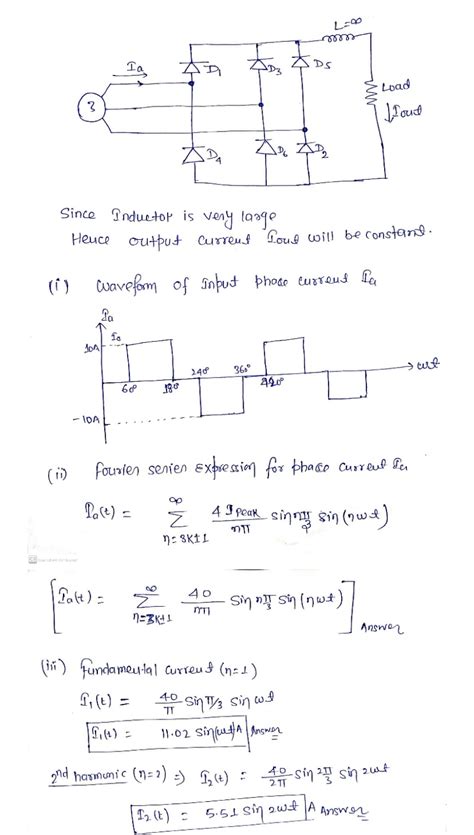 L=∞
Ia
D1
D3
D5
3
Load
Iout
D4
D6
D2
Since Inductor is very large
Hence output current Iout will be constant.
(i) Waveform of Input phase current Ia
Ia
Ia
10A
60° 180° 240° 360° 420° ωt
-10A
(ii) Fourier series Expression for phase current Ia
Ia(t) = ∞ Σ n=3k±1 4 Ipeak / nπ sin nπ/3 sin (nωt)
[Ia(t) = ∞ Σ n=3k±1 40 / nπ sin nπ/3 sin (nωt)]
Answer
(iii) fundamental current (n=1)
I1(t) = 40/π sin π/3 sin ωt
I1(t) = 11.02 sin(ωt) A Answer
2nd harmonic (n=2) ⇒ I2(t) = 40/2π sin 2π/3 sin 2ωt
I2(t) = 5.51 sin 2ωt A Answer